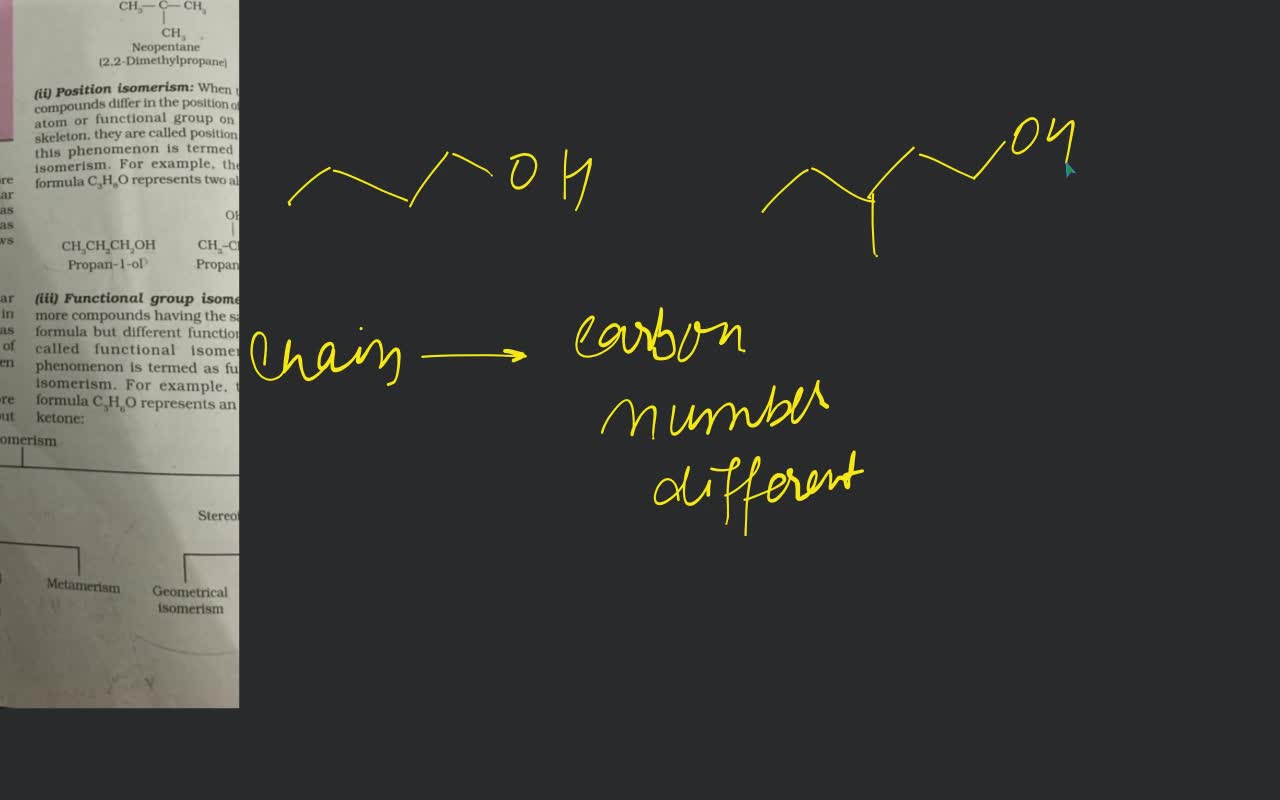 CH₃— C— CH₃
CH₃
Neopentane
(2,2-Dimethylpropane)
(ii) Position isomerism: When
compounds differ in the position of
atom or functional group on
skeleton, they are called position
this phenomenon is termed
isomerism. For example, the
formula C₃H₈O represents two al
re
ar
as
as
ws
OH
CH₃CH₂CH₂OH CH₃–C
Propan-1-ol Propan
ar (iii) Functional group isome
in more compounds having the sa
as formula but different function
of called functional isomer
en phenomenon is termed as fu
isomerism. For example,
re formula C₃H₆O represents an
ut ketone:
omerism
Stereo
Metamerism Geometrical
isomerism
OH OH
Chain → carbon
number
different